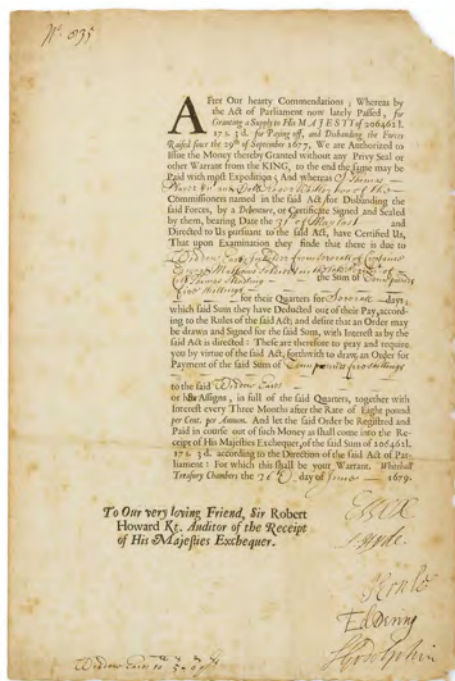 No. 835
AFter Our hearty Commendations; Whereas by
the Act of Parliament now lately Passed, for
Granting a Supply to His MAJESTY of 206462 l.
17 s. 3 d. for Paying off, and Disbanding the Forces
Raised since the 29th of September 1677, We are Authorized to
Issue the Money thereby Granted without any Privy Seal or
other Warrant from the KING, to the end the same may be
Paid with most Expedition; And whereas Sr Thomas
Player
Commissioners named in the said Act for Disbanding the
said Forces, by a Debenture, or Certificate Signed and Sealed
by them, bearing Date the 31st of May last and
Directed to Us pursuant to the said Act, have Certified Us,
That upon Examination they finde that there is due to
Widdow
the Sum of
five shillings
for their Quarters for days;
which said Sum they have Deducted out of their Pay, accord-
ing to the Rules of the said Act; and desire that an Order may
be drawn and Signed for the said Sum, with Interest as by the
said Act is directed: These are therefore to pray and require
you by virtue of the said Act, forthwith to draw an Order for
Payment of the said Sum of five shillings
to the said Widdow Eares
or her Assigns, in full of the said Quarters, together with
Interest every Three Months after the Rate of Eight pound
per Cent. per Annum. And let the said Order be Registred and
Paid in course out of such Money as shall come into the Re-
ceipt of His Majesties Exchequer, of the said Sum of 206462 l.
17 s. 3 d. according to the Direction of the said Act of Par-
liament: For which this shall be your Warrant. Whitehall
Treasury Chambers the 26th day of June 1679.
To Our very loving Friend, Sir Robert
Howard Kt. Auditor of the Receipt
of His Majesties Exchequer.
Essex
Hyde.
Ed Dering
SGodolphin
Widdow Eares